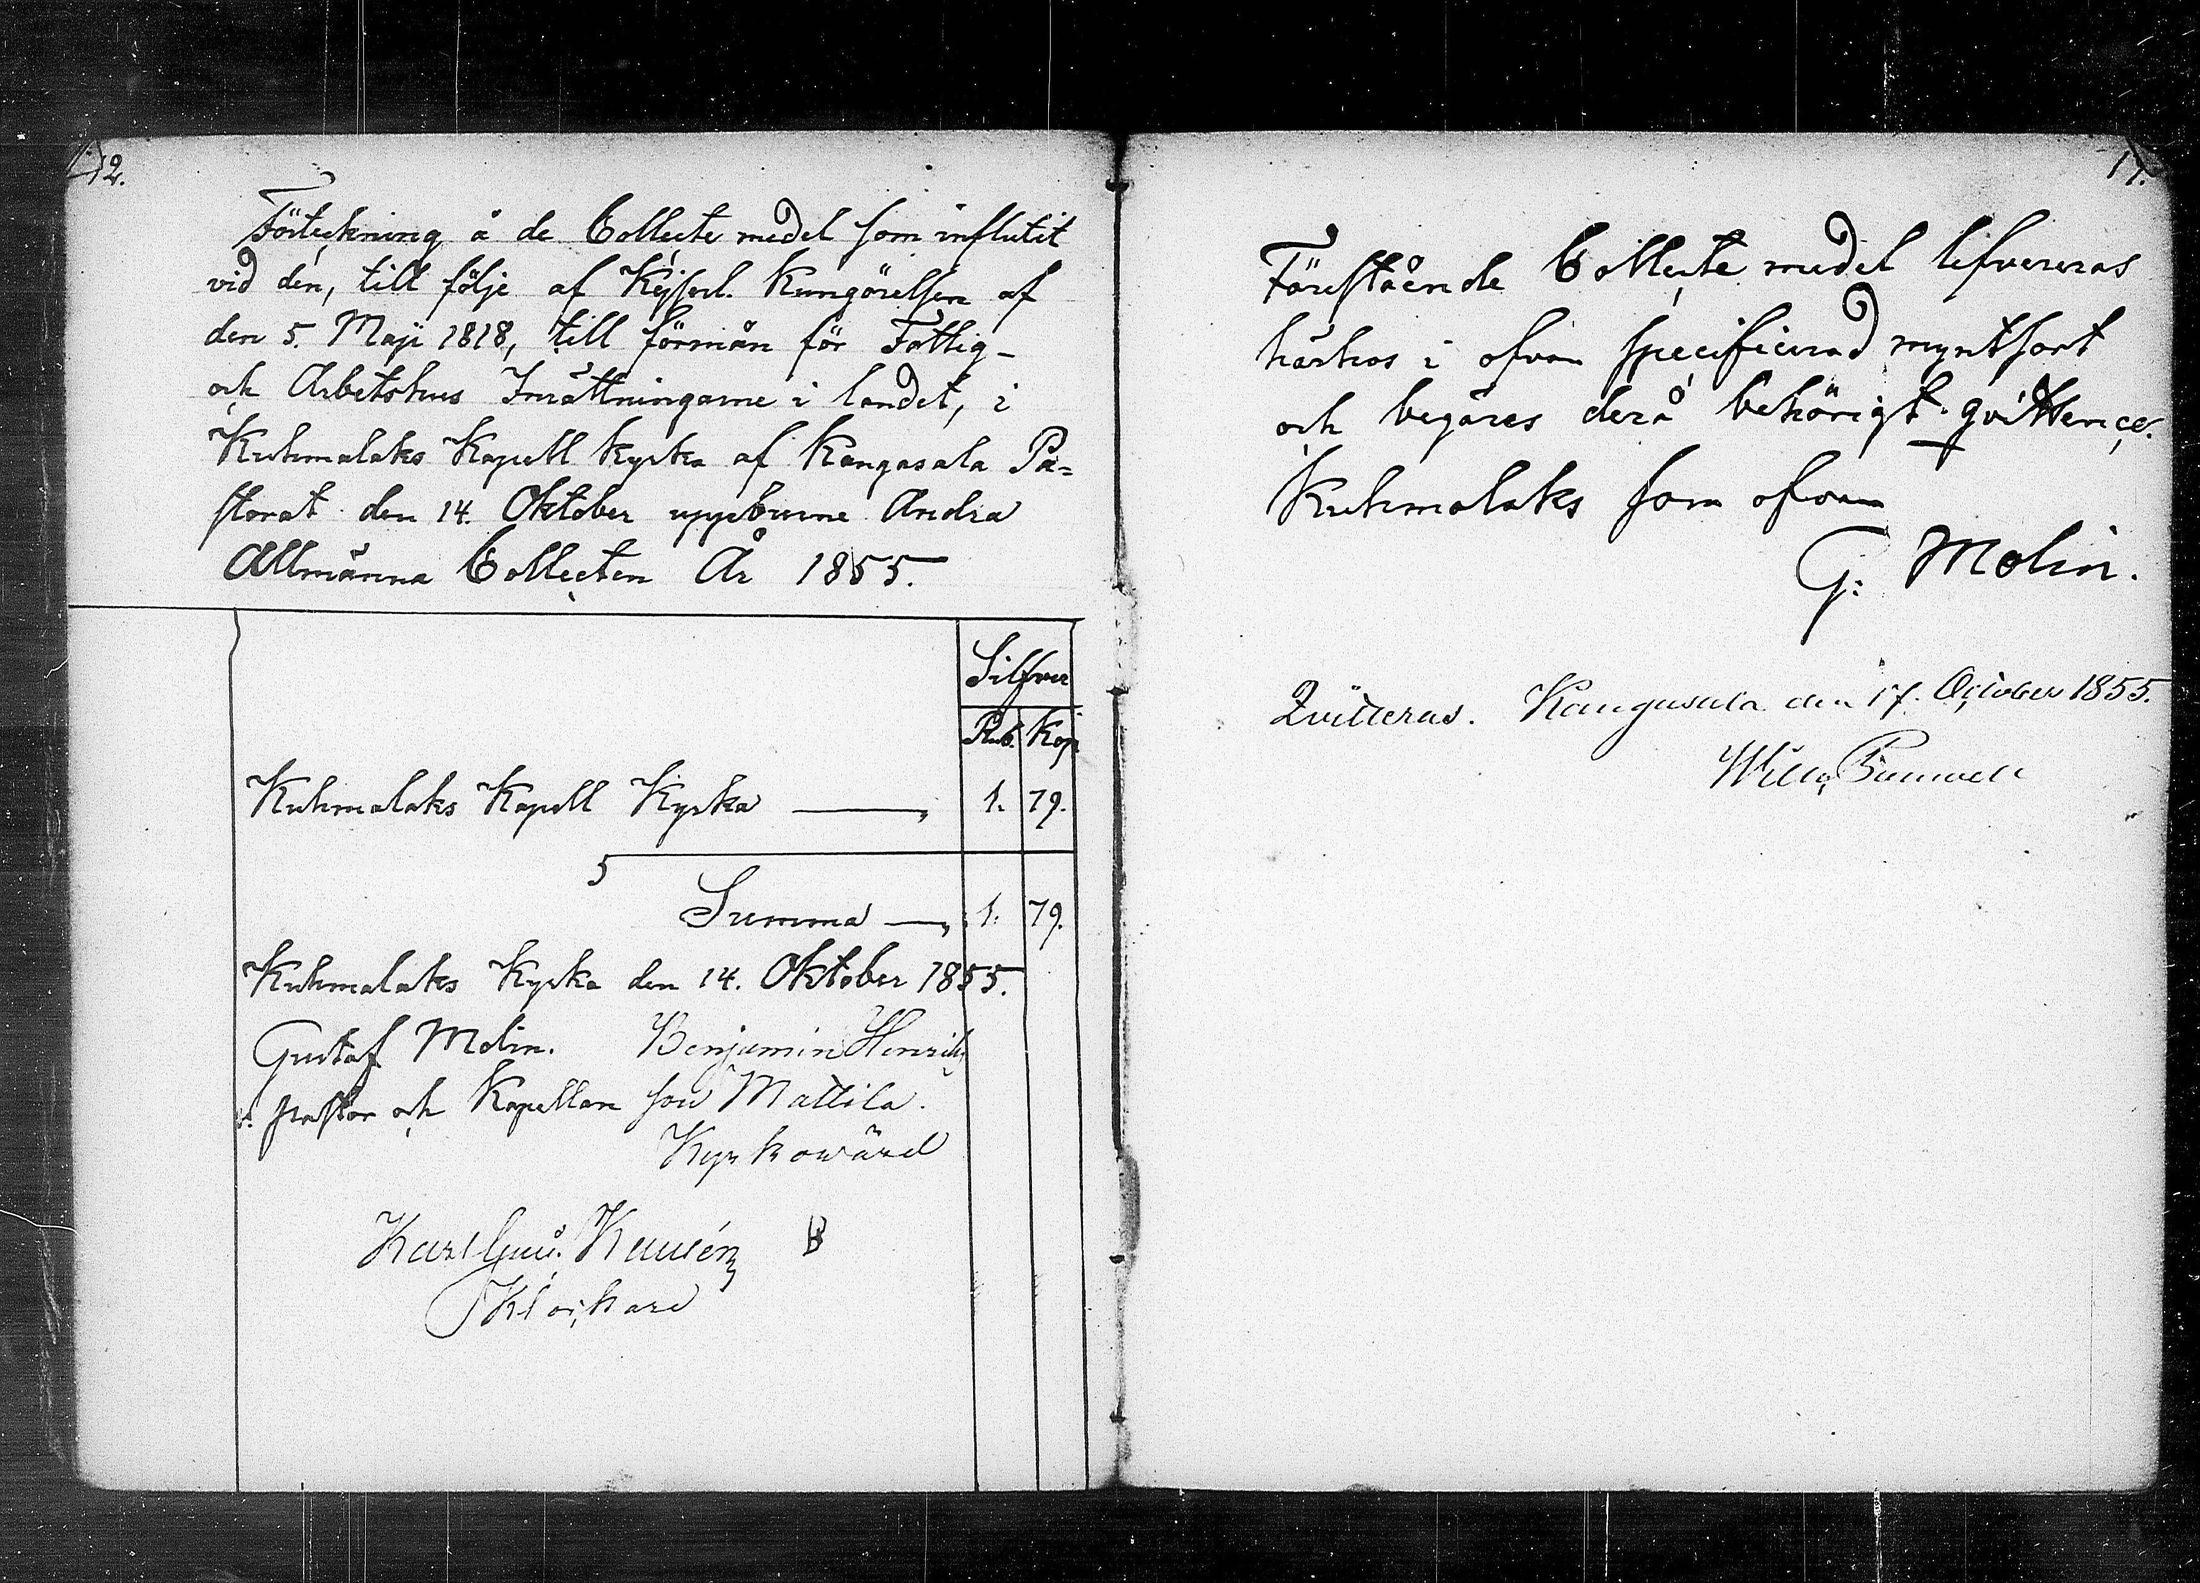 12.
Förteckning å de Collecte medel som influtit
vid den, till följe af Kejserl. Kungörelsen af
den 5. Maji 1818, till förmån för Fattig-
och Arbetshus Inrättningarne i landet, i
Kuhmalaks Kapell kyrka af Kangasala Pa=
storat den 14. Oktober uppeburne Andra
Allmänna Collecten År 1855.
Silfver
Rub. Kop
Kuhmalaks Kapell Kyrka — 1. 79.
Summa — 1. 79.
Kuhmalaks Kyrka den 14. Oktober 1855.
Gustaf Molin. Benjamin Henriks
v. pastor och Kapellan son Mattila.
Kyrkowärd
Karl
Klockare
Förestående Collecte medel lefvereras
härhos i ofvan specificerad myntsort
och begäres derå behörigt qvittence.
Kuhmalaks som ofvan
G: Molin.
Qvitteras. Kangasala den 17. October 1855.